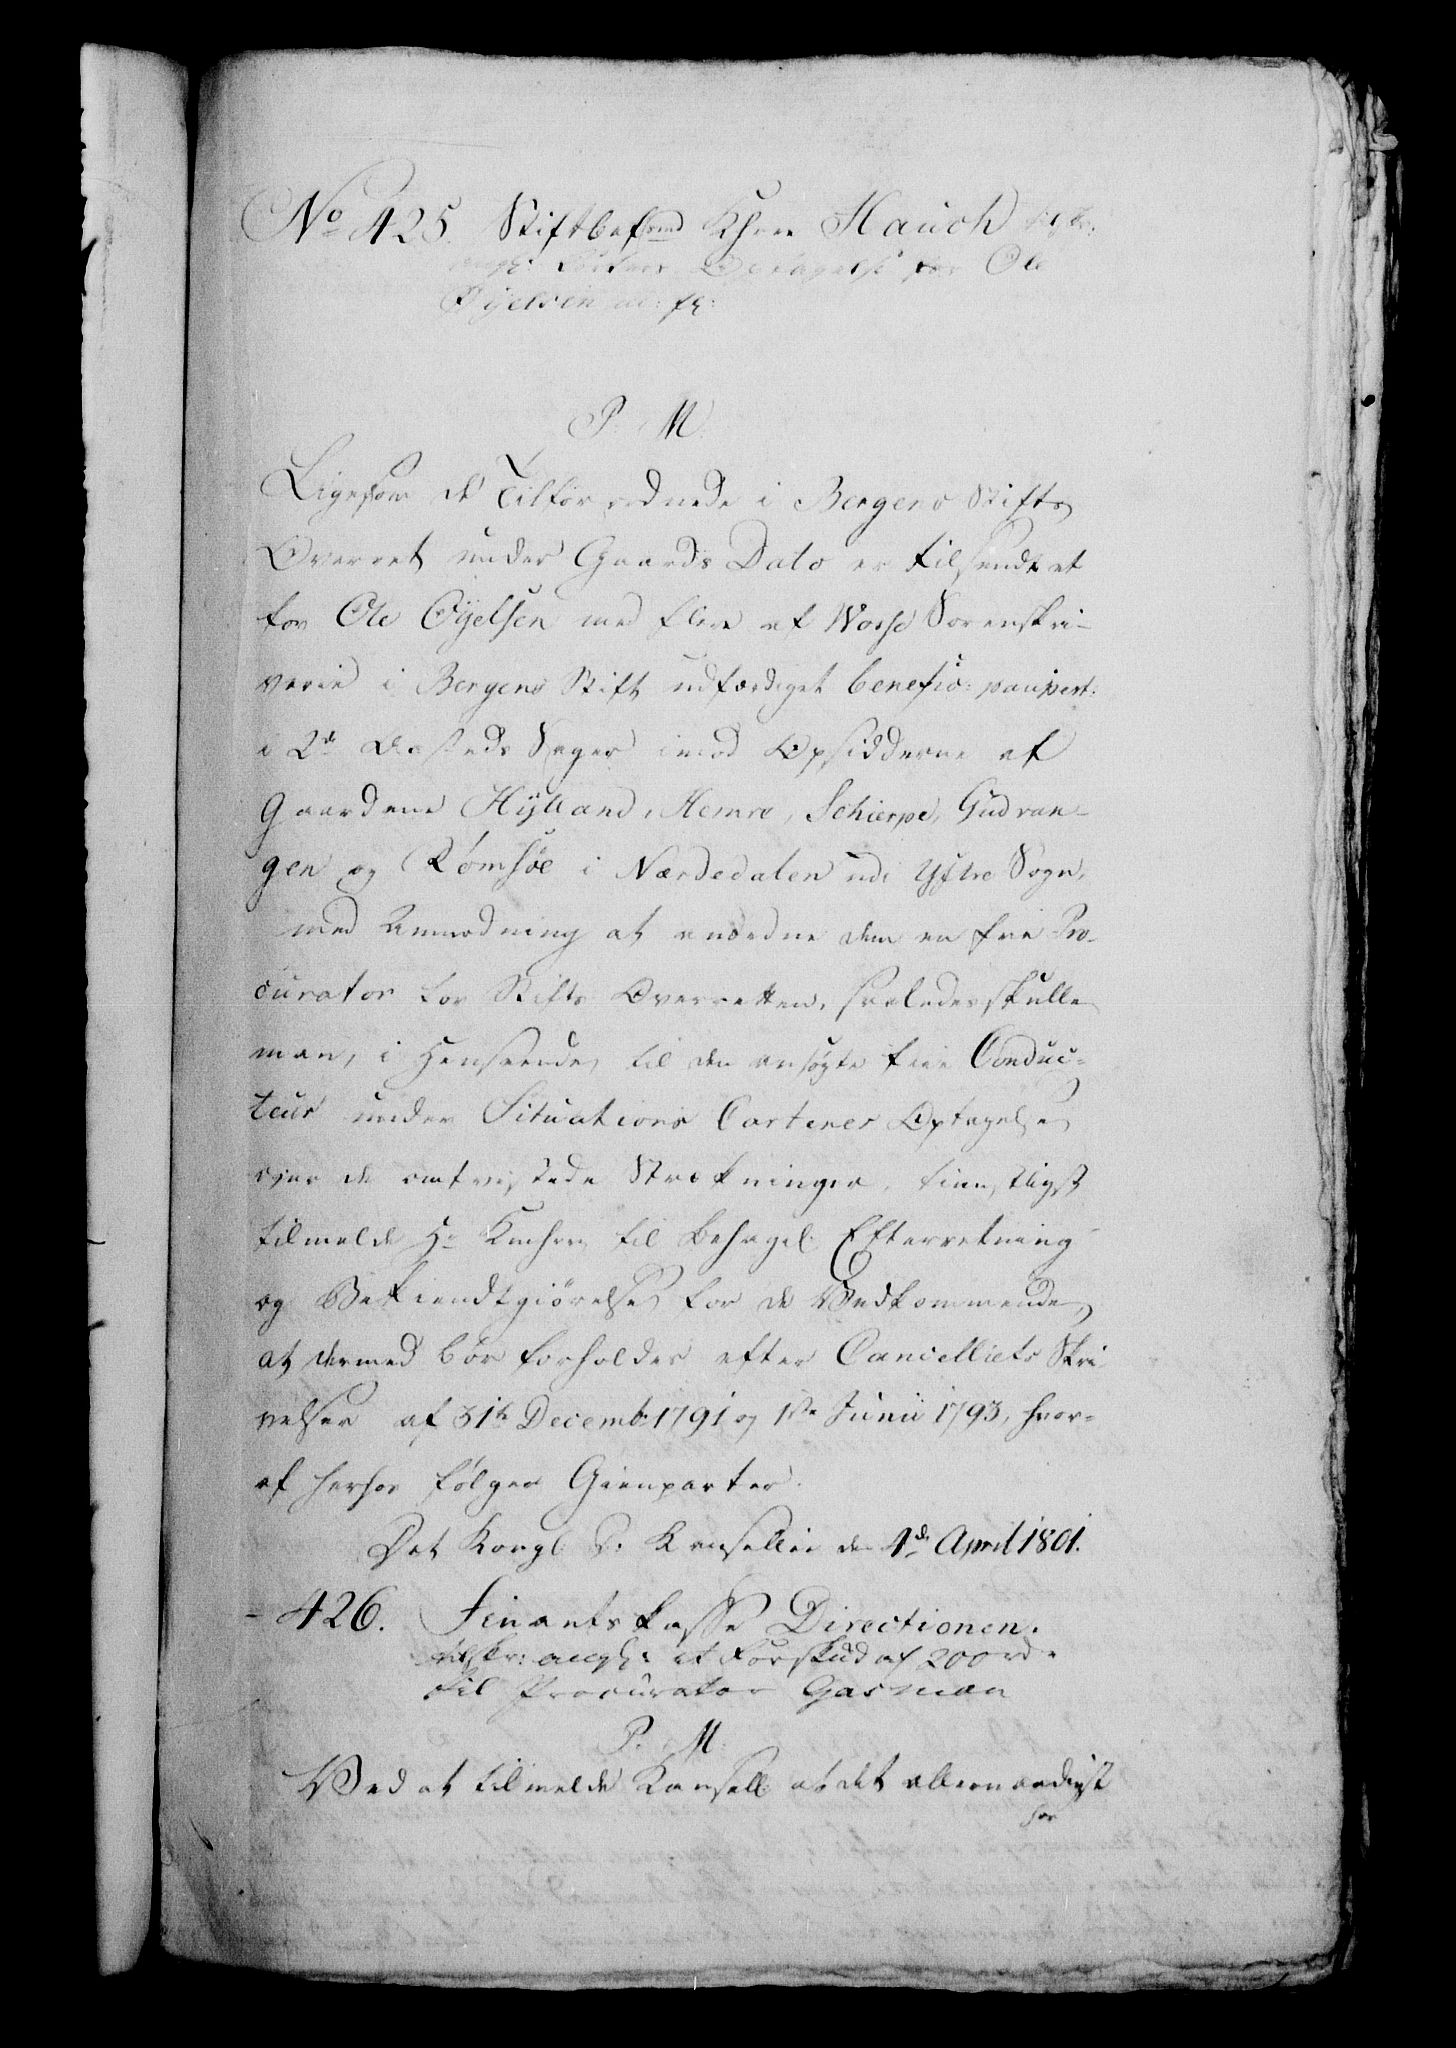 No 425. Stiftbefhmd Khrre Hauch tilskr:
angl: Carters Optagelse for Ole
Öyelsen m: fl:
P. M.
Ligesom de Tilforordnede i Bergens Stifts
Overret under Gaards Dato er tilsendt et
for Ole Öyelsen med flere af Wosse Sorenskri-
verie i Bergens Stift udfærdiget benefic: paupert:
i 2de Aasteds Sager imod Opsidderne af
Gaardene Hÿlland, Hemre, Schierpe, Gudvan-
gen og Römsöe i Nærdedalen udi Ystre Sogn,
med Anmodning at anordne dem en frie Pro-
curator for Stifts Overretten, saaledes skulle
man, i Henseende til den ansøgte frie Conduc-
teur under Situations Carternes Optagelse
over de omtvistede Strækninger, tienstligst
tilmelde Hr Kmhrre til behagel: Efterretning
og Bekiendtgiörelse for de Vedkommende,
at dermed bör forholdes efter Cancelliets Skri
velser af 31te Decemb: 1791 og 1ste Junii 1793, hvor-
af herhos følger Gienparter.
Det Kongl. D. Kanselli den 4de April 1801.
- 426. Finantskasse Directionen.
tilskr: angl: et Forskud af 200 rd.
til Procurator Gasman
P. M.
Ved at tilmelde Kansell: at det allernaadigst
er